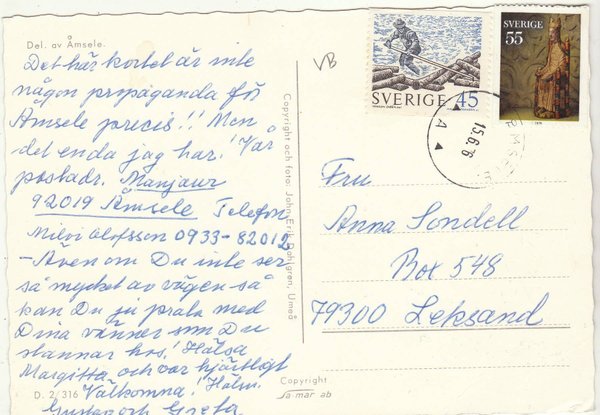 Del. av Åmsele.
Det här kortet är inte
någon propaganda för
Åmsele precis!! Men
det enda jag har! Vår
postadr. Manjaur
92019 Åmsele Telefon
Milov Olofsson 0933-82012
- Även om Du inte ser
så mycket av vägen så
kan Du ju prata med
Dina vänner som Du
stannar hos! Hälsa
Margitta och var hjärtligt
Välkomna! Häls.
Gustav och Greta.
D. 2/316
Copyright och foto: John Erik Dahlgren, Umeå
Copyright
Ja mar ab
VB
SVERIGE 45
SVERIGE
55
A
15.6.76
Fru
Anna Sondell
Box 548
79300 Leksand